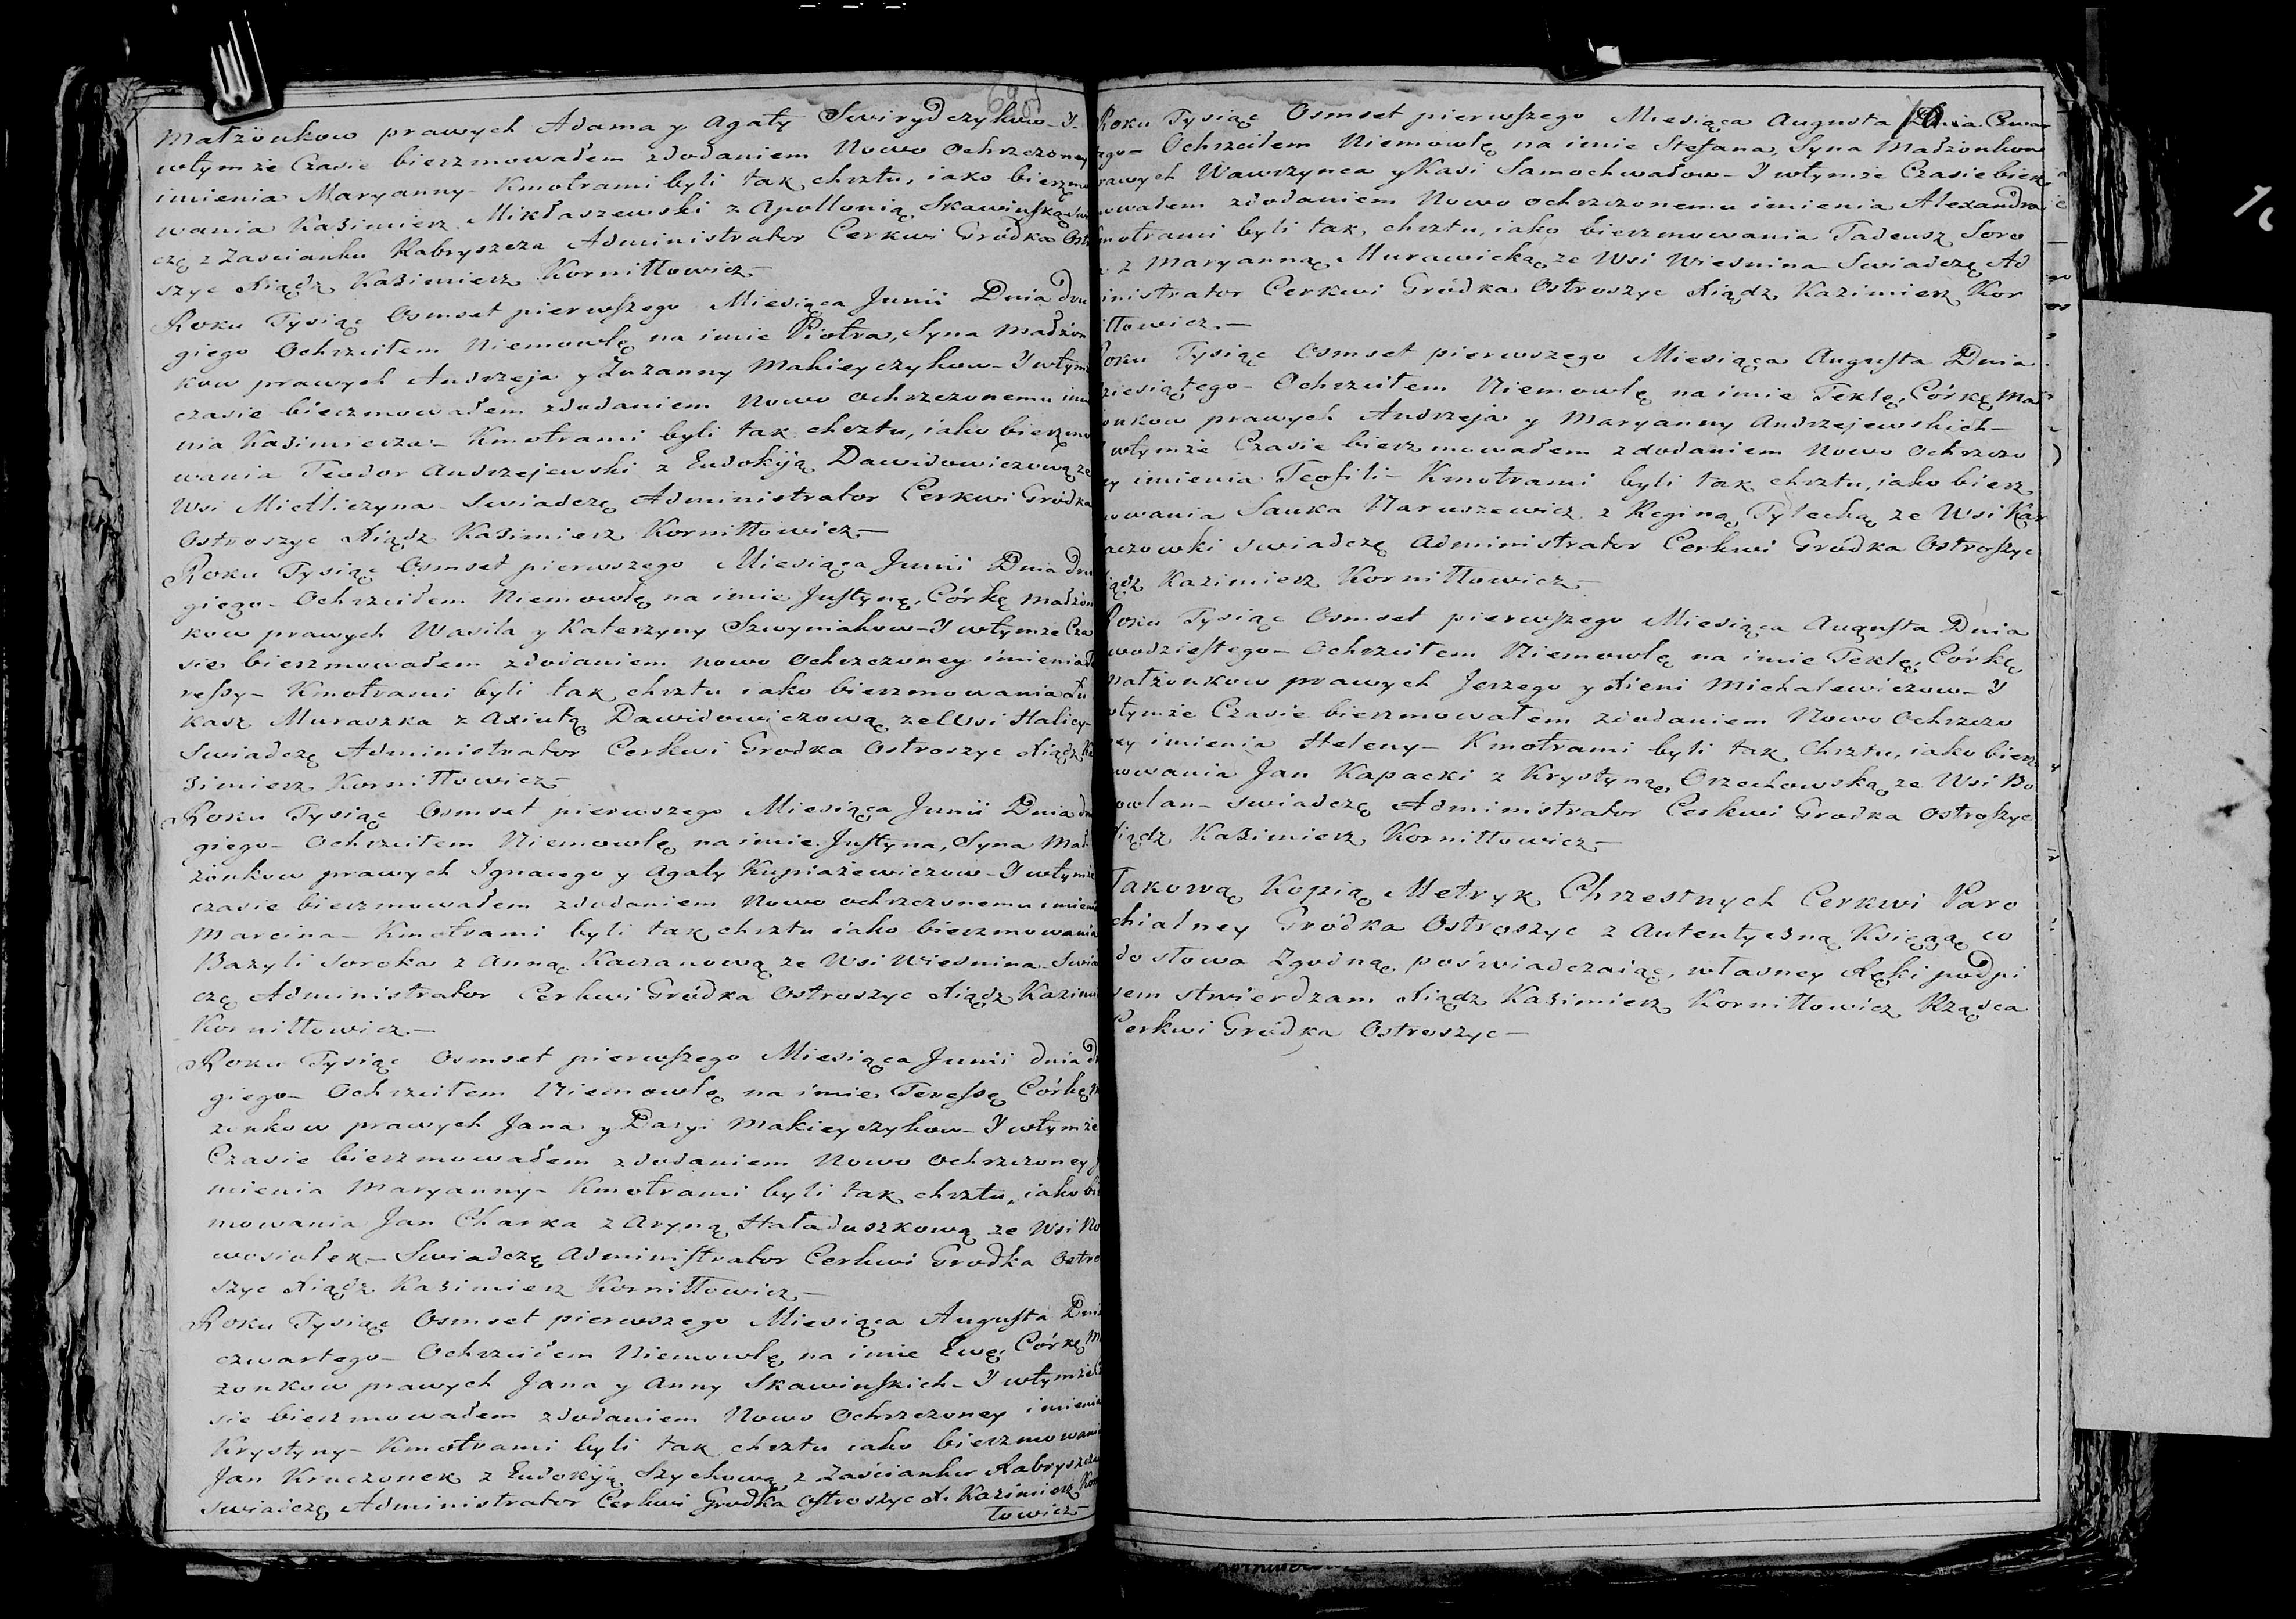 Małżonkow prawych Adama y Agaty Swirydczykow – Y
wtymże Czasie bierzmowałem zdodaniem Nowo ochrzczoney
imienia Maryanny – Kmotrami byli tak chrztu, iako bierzmo
wania Kazimierz Mikłaszewski z Apollonią Skawinską Swia
czę z Zascianku Rabryszcza Administrator Cerkwi Gródka Ostro
szyc Xiądz Kazimierz Korniłłowicz –
Roku Tysiąc Osmset pierwszego Miesiąca Junii Dnia dru
giego Ochrzciłem Niemowlę na imie Piotra, Syna Małżon
kow prawych Andrzeja y Zuzanny Makieyczykow – Y wtym
czasie bierzmowałem zdodaniem Nowo ochrzczonemu imie
nia Kazimierza – Kmotrami byli tak chrztu, iako bierzmo
wania Teodor Andrzejewski z Eudokiją Dawidowiczową ze
Wsi Mietliczyna – Swiadczę Administrator Cerkwi Gródka
Ostroszyc Xiądz Kazimierz Korniłłowicz –
Roku Tysiąc Osmset pierwszego Miesiąca Junii Dnia dru
giego – Ochrzciłem Niemowlę na imie Justynę, Córkę Małżon
kow prawych Wasila y Katerzyny Szwyniakow – Y wtymże Cza
sie bierzmowałem zdodaniem nowo ochrzczoney imienia Te
ressy – Kmotrami byli tak chrztu iako bierzmowania Łu
kasz Muraszka z Axiutą Dawidowiczową ze Wsi Halicy –
Swiadczę Administrator Cerkwi Grodka Ostroszyc Xiądz Ka
zimierz Korniłłowicz –
Roku Tysiąc Osmset pierwszego Miesiąca Junii Dnia dru
giego – Ochrzciłem Niemowlę na imie Justyna, Syna Mał
żonkow prawych Ignacego y Agaty Kupiażewiczow – Y wtymże
czasie bierzmowałem zdodaniem Nowo ochrzczonemu imienia
Marcina – Kmotrami byli tak chrztu iako bierzmowania
Bazyli Soroka z Anną Kaczanową ze Wsi Wiesnina – Swia
czę Administrator Cerkwi Gródka Ostroszyc Xiądz Kazimi
Korniłłowicz –
Roku Tysiąc Osmset pierwszego Miesiąca Junii dnia dr
giego – Ochrzciłem Niemowlę na imie Teressę Córkę M
żonkow prawych Jana y Daryi Makieyczykow – Y wtymże
Czasie bierzmowałem zdodaniem Nowo ochrzczoney j
mienia Maryanny – Kmotrami byli tak chrztu, iako bi
mowania Jan Charka z Aryną Haładuszkową ze Wsi No
wosiołek – Swiadczę Administrator Cerkwi Grodka Ostro
szyc Xiądz Kazimierz Korniłłowicz –
Roku Tysiąc Osmset pierwszego Miesiąca Augusta Dnia
czwartego – Ochrzciłem Niemowlę na imie Ewę, Córkę M
żonkow prawych Jana y Anny Skawinskich – Y wtymże C
sie bierzmowałem zdodaniem Nowo Ochrzczoney imienia
Krystyny – Kmotrami byli tak chrztu iako bierzmowani
Jan Kruczonek z Eudokiją Szychową z Zaścianku Rabryszcza
Swiadczę Administrator Cerkwi Grodka Ostroszyc X. Kazimierz Korni
łowicz –
Roku Tysiąc Osmset pierwszego Miesiąca Augusta Dnia Czwar
tego – Ochrzciłem Niemowlę na imie Stefana, Syna Małżonkow
prawych Wawrzynca y Kasi Samochwałow – Y wtymże Czasie bierz
mowałem zdodaniem Nowo ochrzczonemu imienia Alexandra
Kmotrami byli tak chrztu, iako bierzmowania Tadeusz Soro
ka z Maryanną Murawicką ze Wsi Wiesnina – Swiadczę Ad
ministrator Cerkwi Gródka Ostroszyc Xiądz Kazimierz Kor
iłłowicz –
Roku Tysiąc Osmset pierwszego Miesiąca Augusta Dnia
dziesiątego – Ochrzciłem Niemowlę na imie Teklę, Córkę Mał
żonkow prawych Andrzeja y Maryanny Andrzejewskich –
Y wtymże Czasie bierzmowałem zdodaniem Nowo Ochrzczo
ney imienia Teofili – Kmotrami byli tak chrztu, iako bierz
mowania Sauka Naruszewicz z Reginą Tylecką ze Wsi Kar
aczowki swiadczę Administrator Cerkwi Grodka Ostroszyc
Xiądz Kazimierz Korniłłowicz –
Roku Tysiąc Osmset pierwszego Miesiąca Augusta Dnia
dwodziestego – Ochrzciłem Niemowlę na imie Teklę, Córkę
Małżonkow prawych Jerzego y Xieni Michalewiczow – Y
wtymże Czasie bierzmowałem zdodaniem Nowo Ochrzczo
ney imienia Heleny – Kmotrami byli tak Chrztu, iako bierz
mowania Jan Kapacki z Krystyną Orzechowską ze Wsi Bo
owlan – swiadczę Administrator Cerkwi Grodka Ostroszyc
Xiądz Kazimierz Korniłłowicz –
Takową Kopią Metryk Chrzestnych Cerkwi Paro
chialney Gródka Ostroszyc z Autentyczną Księgą co
do słowa Zgodną poświadczaiąc, własney Ręki podpi
sem stwierdzam Xiądz Kazimierz Korniłłowicz Rządca
Cerkwi Gródka Ostroszyc –